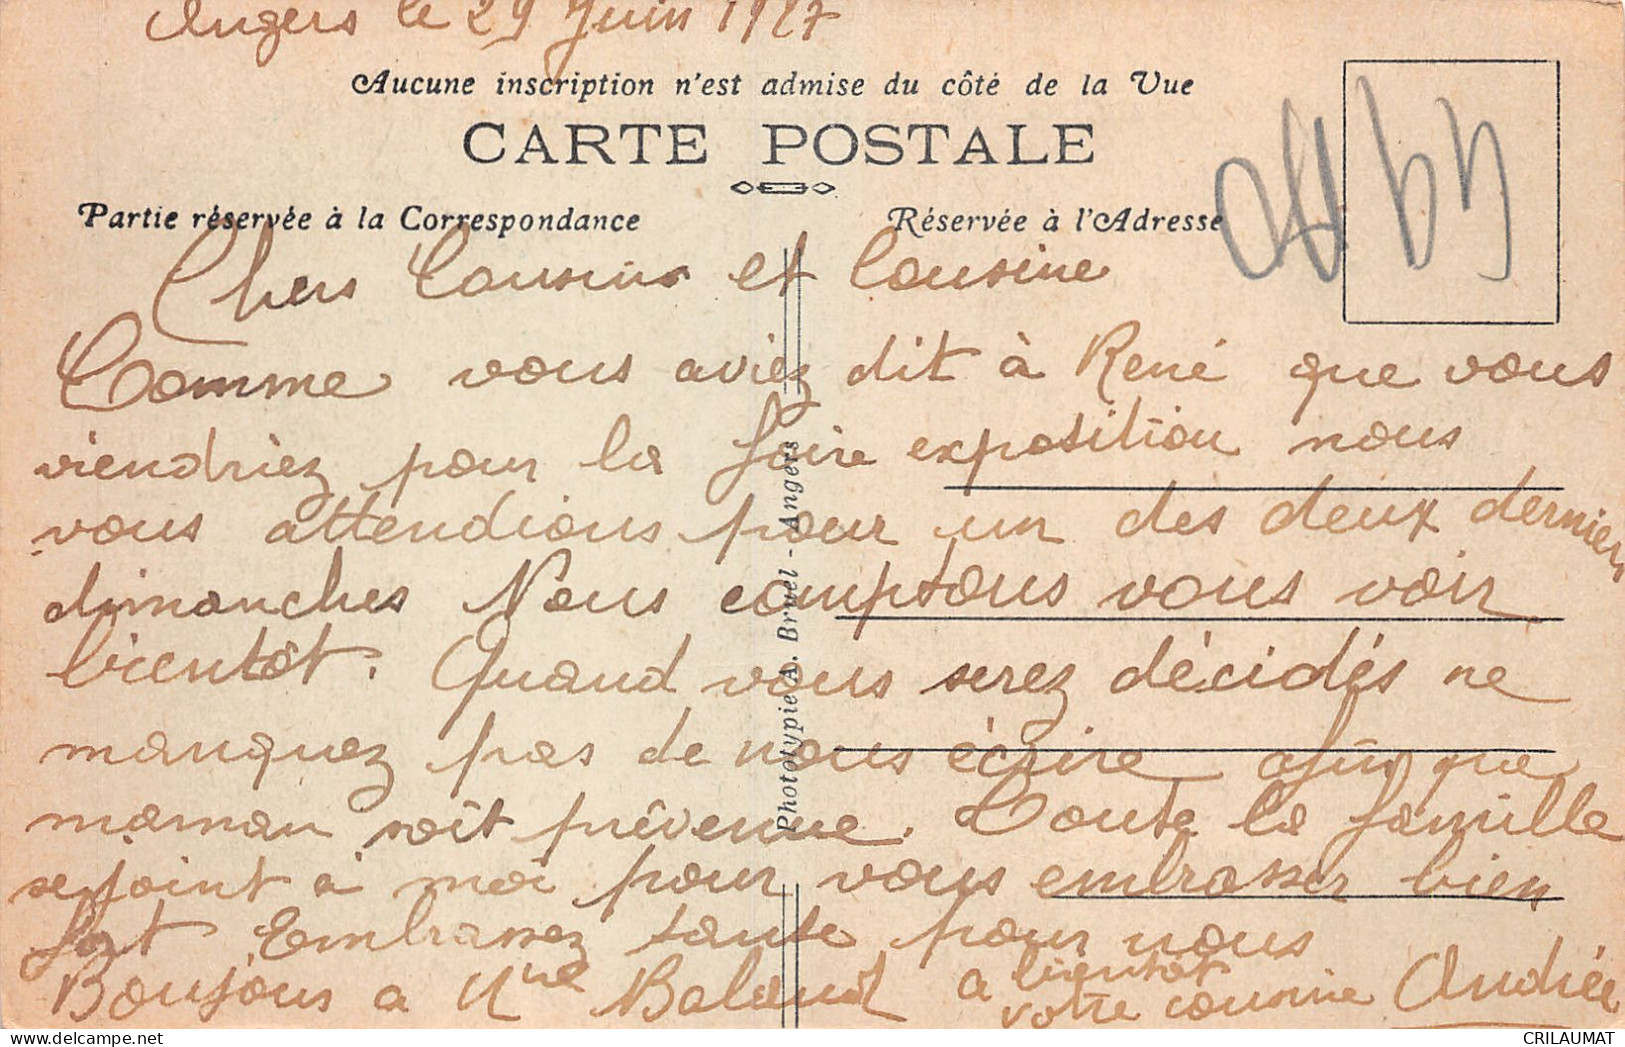 Angers le 29 Juin 1927
Aucune inscription n'est admise du côté de la Vue
CARTE POSTALE
Partie réservée à la Correspondance
Réservée à l'Adresse
Chers Cousins et Cousine
Comme vous aviez dit à René que vous
viendriez pour la foire exposition nous
vous attendions pour un des deux derniers
dimanches Nous comptons vous voir
bientôt. Quand vous serez décidés ne
manquez pas de nous écrire afin que
maman soit prévenue. Toute la famille
se joint à moi pour vous embrasser bien
fort Embrassez tante pour nous
Bonjour a Mme Baland a bientôt
votre cousine Andrée
Phototypie A. Bruel - Angers
CRILAUMAT